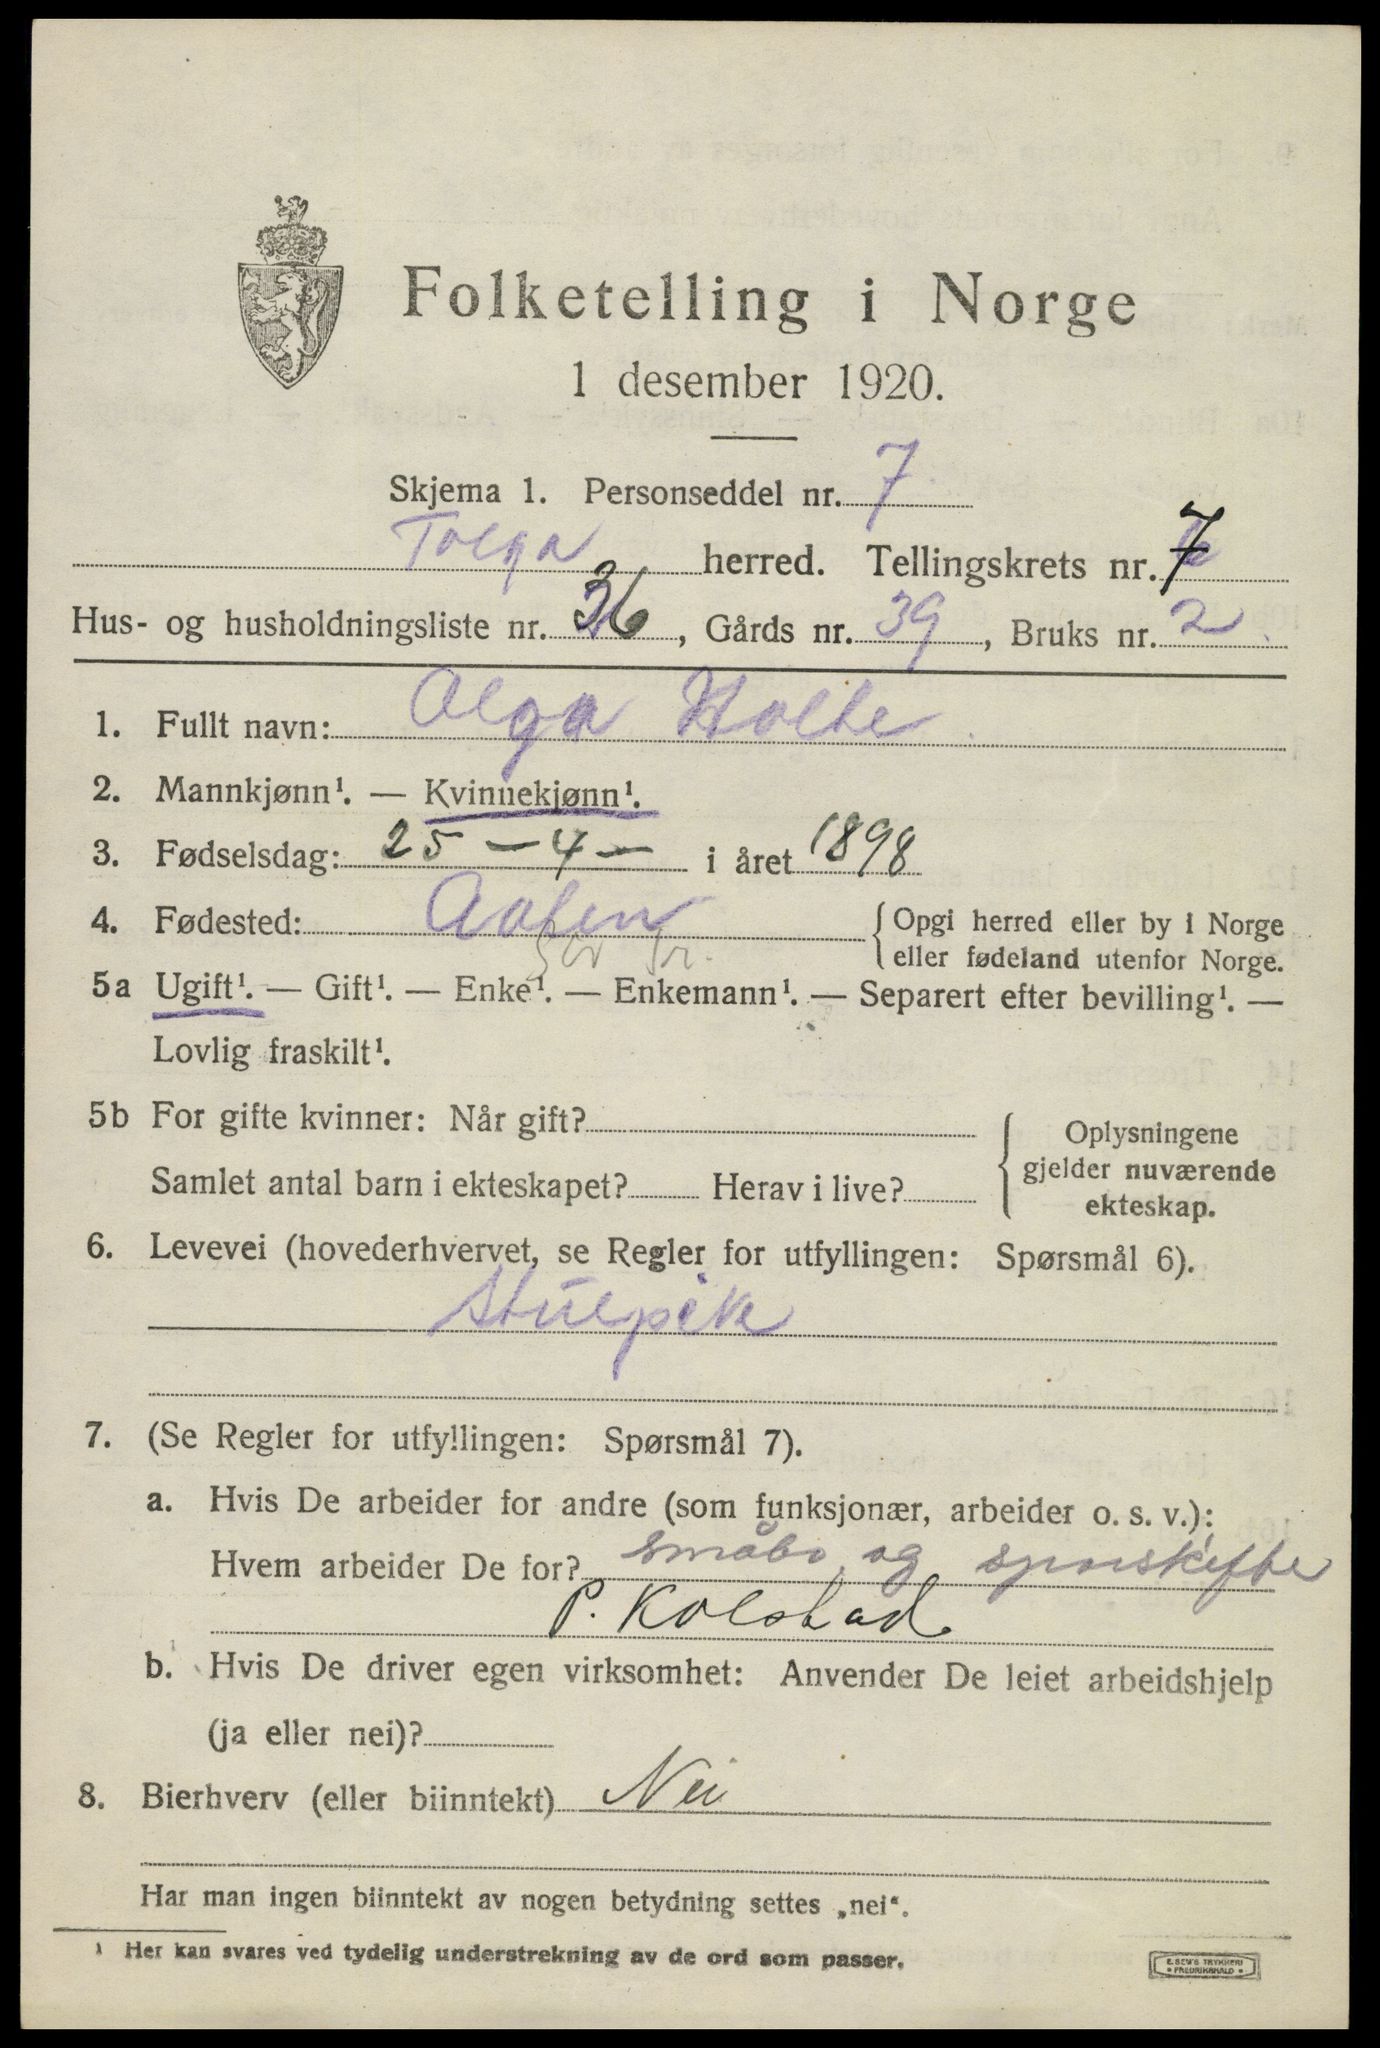 Folketelling i Norge
1 desember 1920.
Skjema 1. Personseddel nr. 7
Tolga herred. Tellingskrets nr. 7
Hus- og husholdningsliste nr. 36, Gårds nr. 39, Bruks nr. 2
1. Fullt navn: Olga Holte
2. Mannkjønn¹. — Kvinnekjønn¹.
3. Fødselsdag: 25 — 4 — i året 1898
4. Fødested: Aafen {Opgi herred eller by i Norge
eller fødeland utenfor Norge.
Sør Tr.
5a Ugift¹. — Gift¹. — Enke¹. — Enkemann¹. — Separert efter bevilling¹. —
Lovlig fraskilt¹.
5b For gifte kvinner: Når gift?
Samlet antal barn i ekteskapet? Herav i live?
{Oplysningene
gjelder nuværende
ekteskap.
6. Levevei (hovederhvervet, se Regler for utfyllingen: Spørsmål 6).
Stuepik
7. (Se Regler for utfyllingen: Spørsmål 7).
a. Hvis De arbeider for andre (som funksjonær, arbeider o. s. v.):
Hvem arbeider De for? småbr. og sporskifte
P. Kolstad
b. Hvis De driver egen virksomhet: Anvender De leiet arbeidshjelp
(ja eller nei)?
8. Bierhverv (eller biinntekt) Nei
Har man ingen biinntekt av nogen betydning settes „nei“.
¹ Her kan svares ved tydelig understrekning av de ord som passer.
E. SEM'S TRYKKERI
• FREDRIKSHALD •